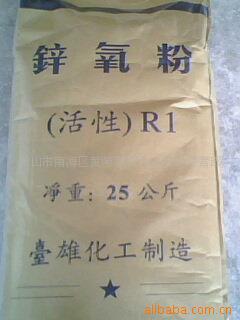 鋅氧粉
(活性) R1
淨重: 25 公斤
臺雄化工制造
alibaba.com.cn